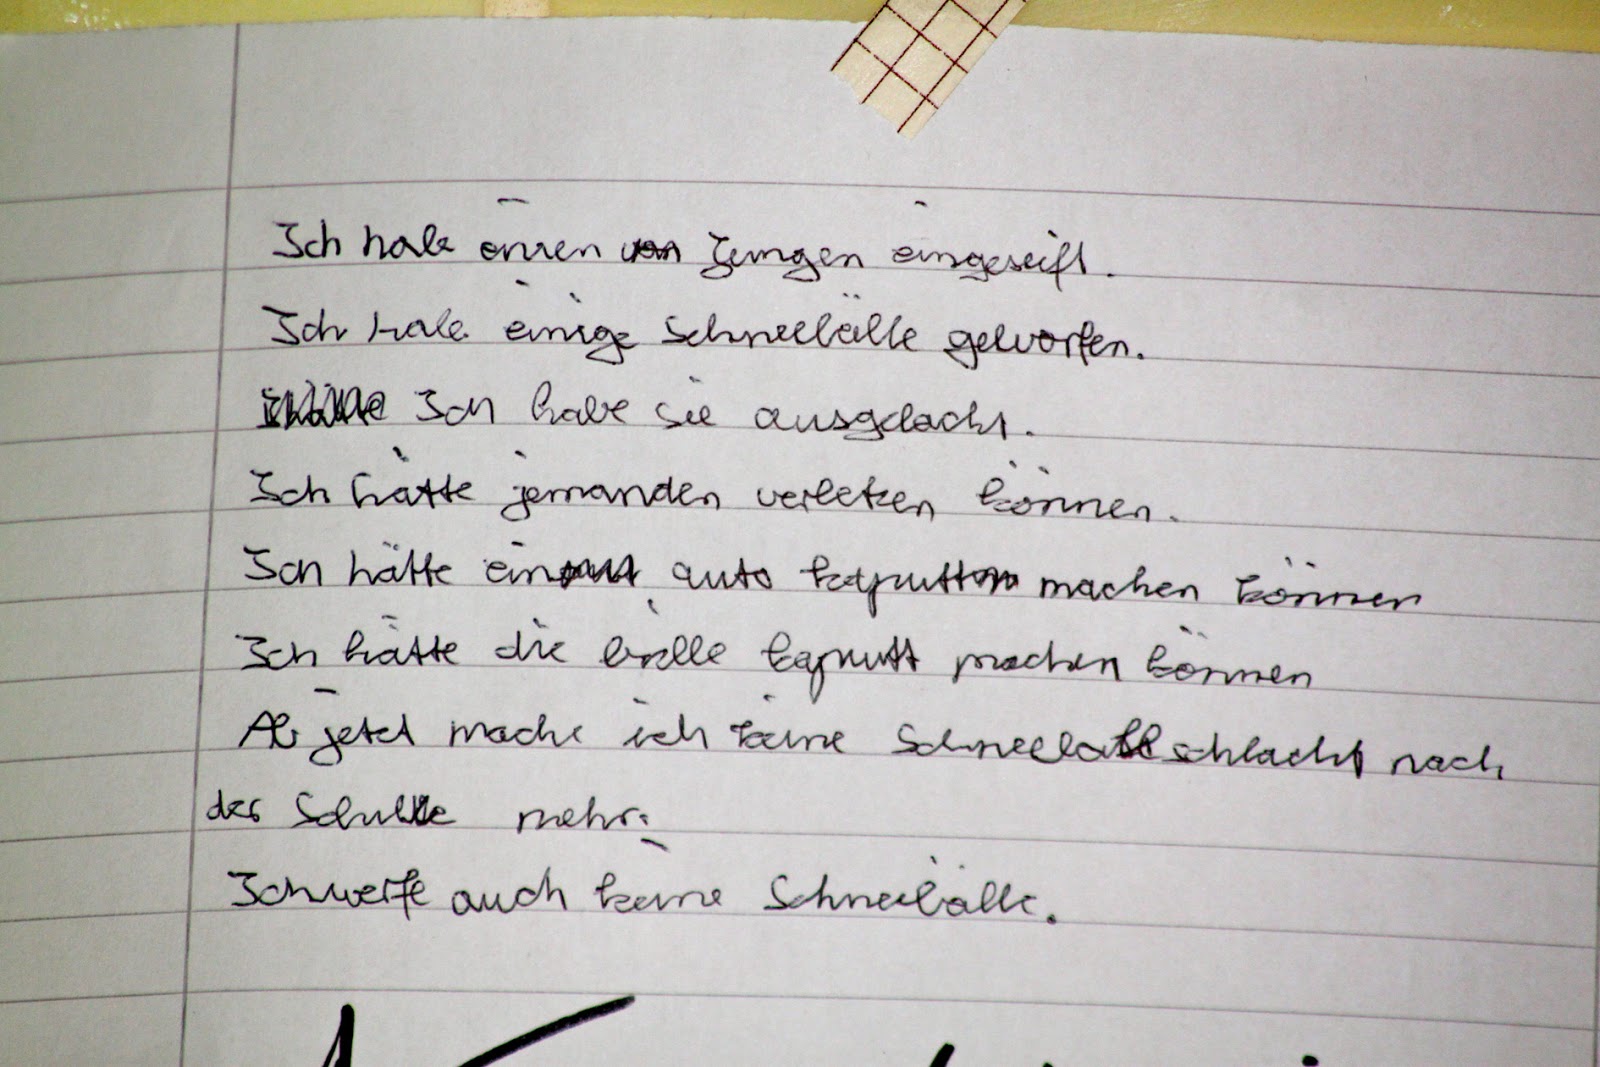 Ich habe einen Jungen eingeseift.
Ich habe einige Schneebälle geworfen.
Ich habe sie ausgelacht.
Ich hätte jemanden verletzen können.
Ich hätte ein auto kaputt machen können
Ich hätte die brille kaputt machen können
Ab jetzt mache ich keine Schneeballschlacht nach
der Schule mehr.
Ich werfe auch keine Schneebälle.